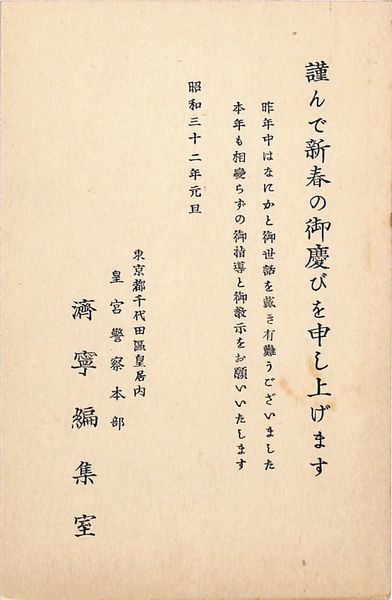 謹んで新春の御慶びを申し上げます
昨年中はなにかと御世話を戴き有難うございました
本年も相變らずの御指導と御教示をお願いいたします
昭和三十二年元旦
東京都千代田區皇居内
皇宮警察本部
濟寧編集室